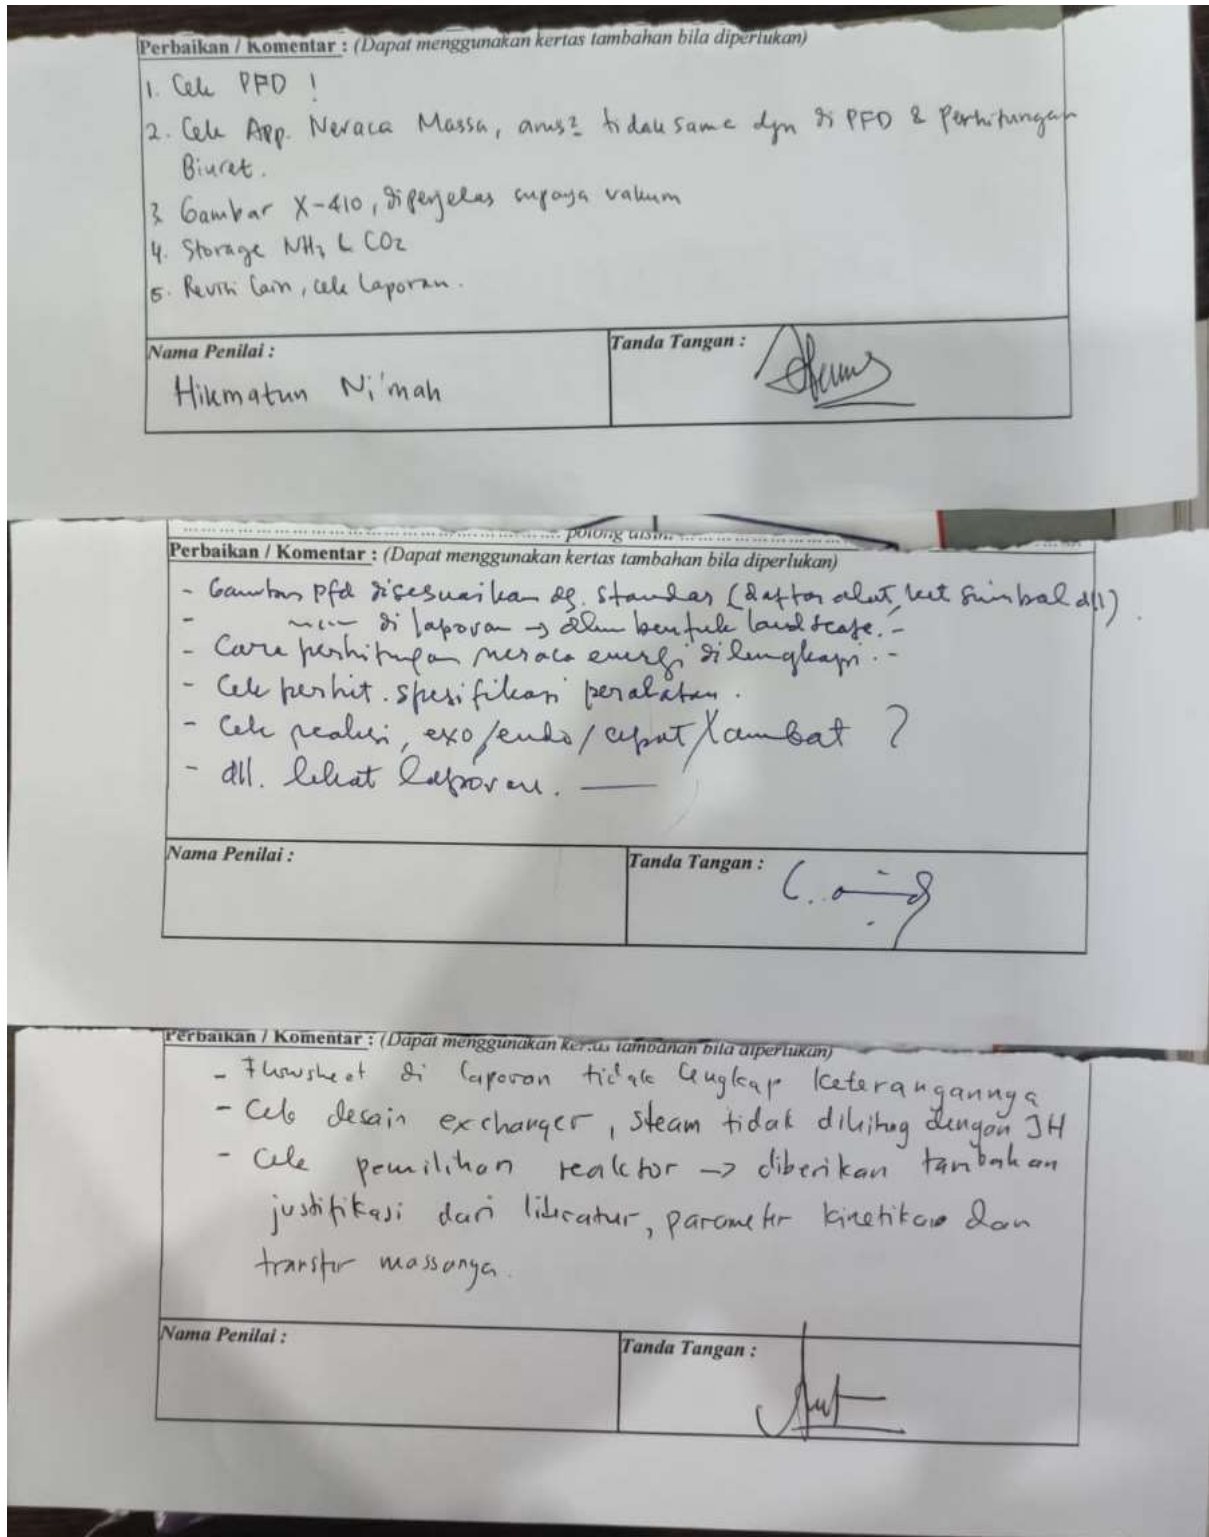 Perbaikan / Komentar : (Dapat menggunakan kertas tambahan bila diperlukan)
1. Cek PFD !
2. Cek App. Neraca Massa, arus² tidak sama dgn di PFD & Perhitungan
Biuret.
3. Gambar X-410, diperjelas supaya vakum
4. Storage NH3 & CO2
5. Revisi lain, cek laporan.
Nama Penilai :
Hikmatun Ni'mah
Tanda Tangan :
potong disini
Perbaikan / Komentar : (Dapat menggunakan kertas tambahan bila diperlukan)
- Gambar pfd disesuaikan dg. standar (daftar alat, ket simbol dll)
- di laporan → dlm bentuk landscape. -
- Cara perhitungan neraca energi dilengkapi. -
- Cek perhit. spesifikasi peralatan.
- Cek reaksi, exo/endo/cepat/lambat ?
- dll. lihat laporan.
Nama Penilai :
Tanda Tangan :
Perbaikan / Komentar : (Dapat menggunakan kertas tambahan bila diperlukan)
- Flowsheet di laporan tidak lengkap keterangannya
- Cek desain exchanger, steam tidak dihitung dengan JH
- Cek pemilihan reaktor -> diberikan tambahan
justifikasi dari literatur, parameter kinetika dan
transfer massanya.
Nama Penilai :
Tanda Tangan :